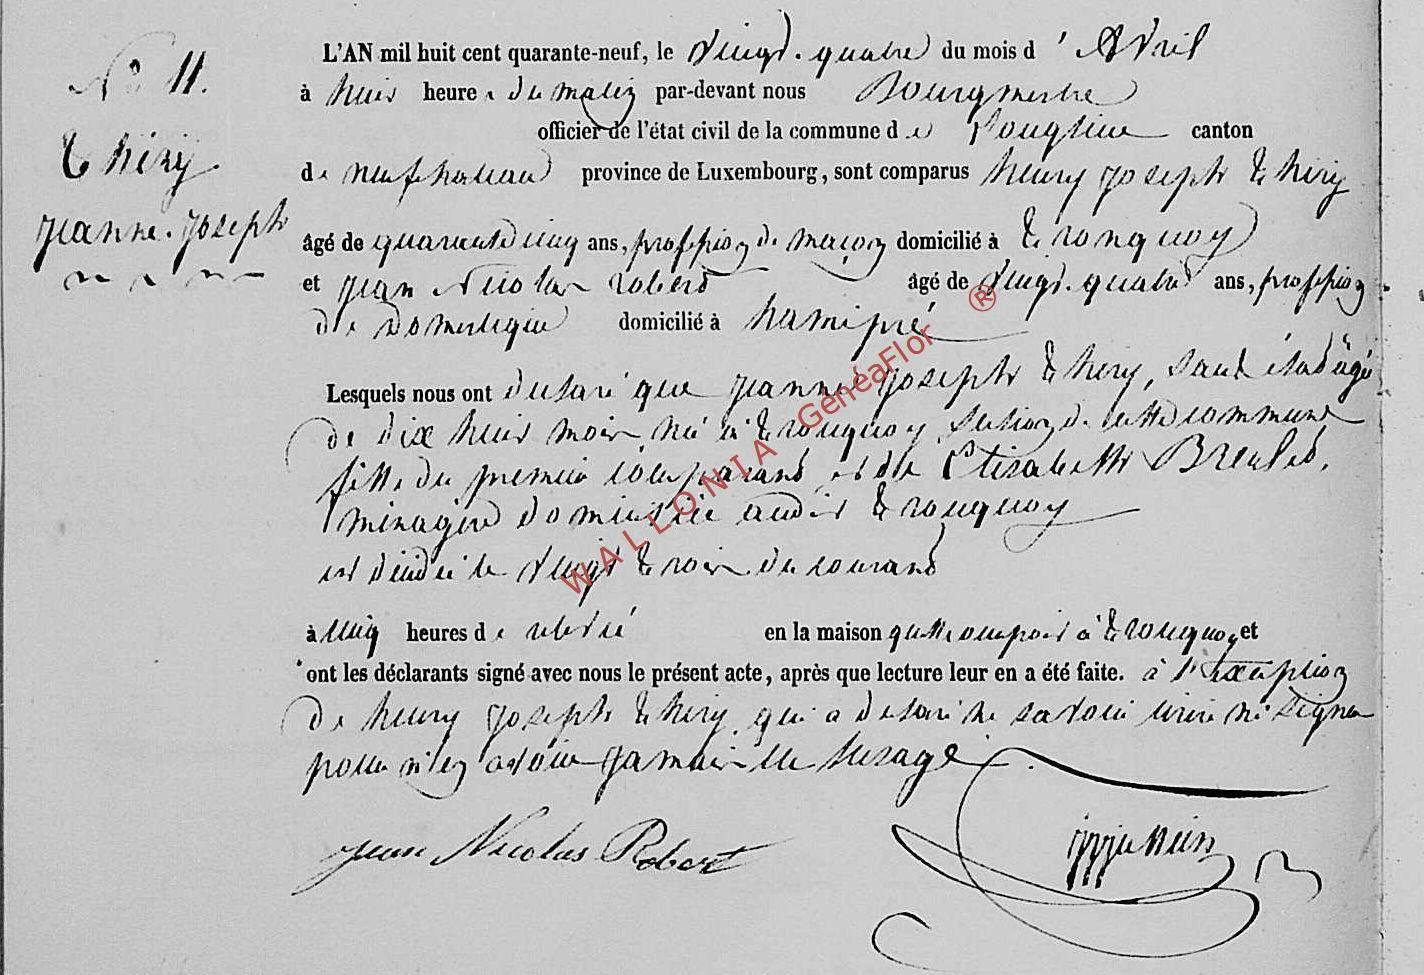 N° 11.
Thiry
Jeanne. Joseph
L'AN mil huit cent quarante-neuf, le vingt-quatre du mois d'Avril
à huit heures du matin par-devant nous Bourgmestre
officier de l'état civil de la commune de Longlier canton
de neufchateau province de Luxembourg, sont comparus henry joseph Thiry
âgé de quarante cinq ans, profession de maçon domicilié à Tronquoy
et jean Nicolas robert âgé de vingt-quatre ans, profession
de Domestique domicilié à hamipré
Lesquels nous ont declaré que jeanne joseph Thiry, sans état âgé
de dix huit mois né à Tronquoy, section de cette commune
fille du premier comparant et de Elisabeth
ménagère domiciliée audit Tronquoy
est décédé le vingt trois du courant
à cinq heures de relevé en la maison qu'elle occupoit à Tronquoy et
ont les déclarants signé avec nous le présent acte, après que lecture leur en a été faite. à l'exception
de henry joseph Thiry qui a declaré ne savoir écrire ni signer
pour n'en avoir jamais eu l'usage.
Jean Nicolas Robert
WALLONIA GenéaFlor ®